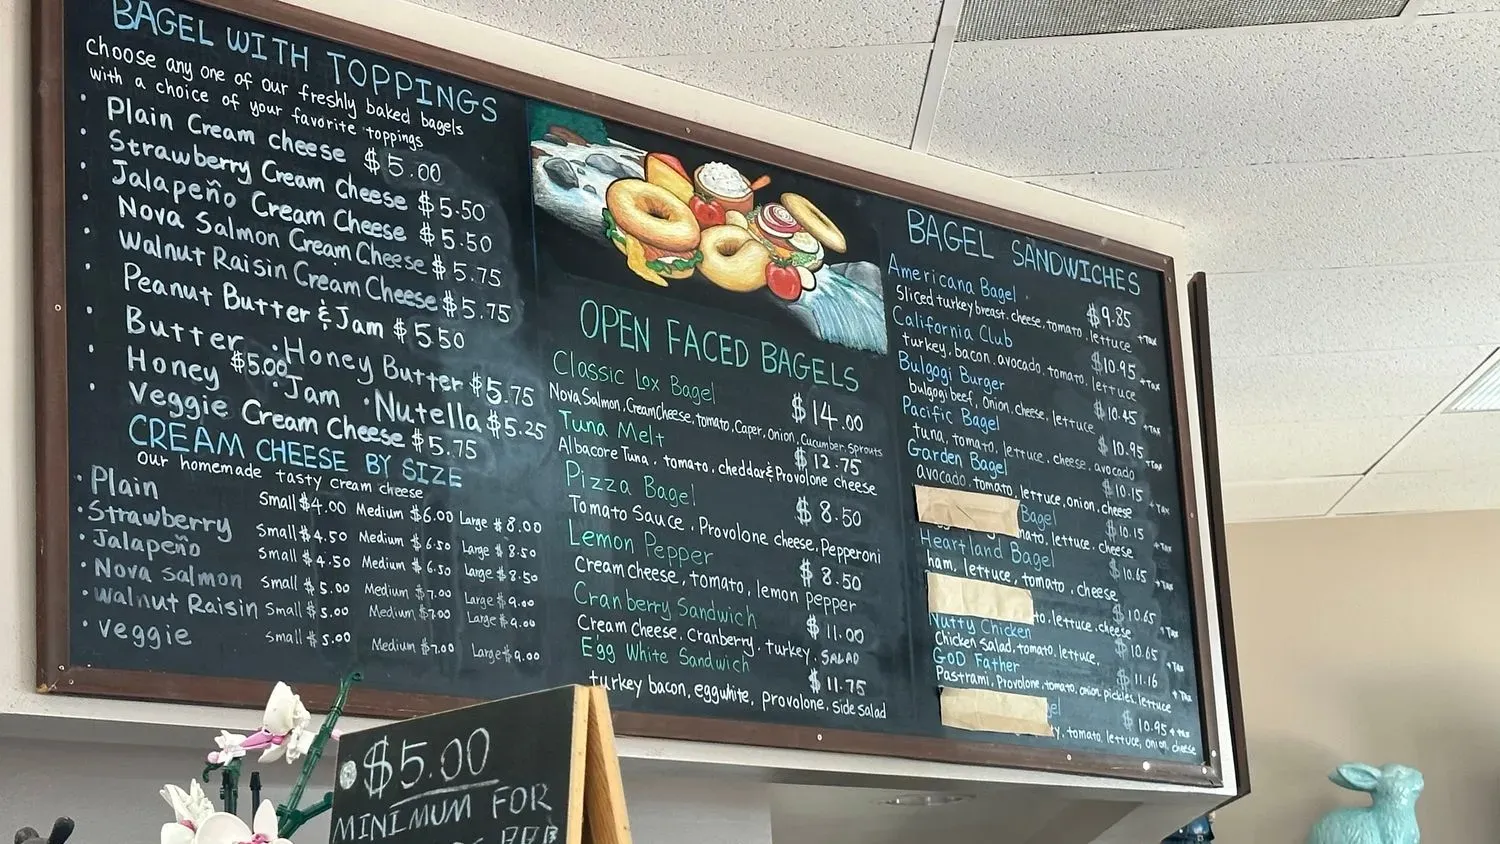 BAGEL WITH TOPPINGS
Choose any one of our freshly baked bagels
with a choice of your favorite toppings
• Plain Cream cheese $5.00
• Strawberry Cream cheese $5.50
• Jalapeño Cream Cheese $5.50
• Nova Salmon Cream Cheese $5.75
• Walnut Raisin Cream Cheese $5.75
• Peanut Butter & Jam $5.50
• Butter • Honey Butter $5.75
• Honey $5.00 • Jam • Nutella $5.25
• Veggie Cream Cheese $5.75
CREAM CHEESE BY SIZE
our homemade tasty cream cheese
• Plain Small $4.00 Medium $6.00 Large $8.00
• Strawberry Small $4.50 Medium $6.50 Large $8.50
• Jalapeño Small $4.50 Medium $6.50 Large $8.50
• Nova Salmon Small $5.00 Medium $7.00 Large $9.00
• Walnut Raisin Small $5.00 Medium $7.00 Large $9.00
• Veggie Small $5.00 Medium $7.00 Large $9.00
OPEN FACED BAGELS
Classic Lox Bagel $14.00
Nova Salmon, Cream Cheese, tomato, Caper, Onion, Cucumber, Sprouts
Tuna Melt $12.75
Albacore Tuna, tomato, cheddar & Provolone cheese
Pizza Bagel $8.50
Tomato Sauce, Provolone cheese, Pepperoni
Lemon Pepper $8.50
Cream Cheese, tomato, lemon Pepper
Cranberry Sandwich $11.00
Cream Cheese, Cranberry, turkey, SALAD
Egg White Sandwich $11.75
turkey bacon, eggwhite, provolone, side salad
BAGEL SANDWICHES
Americana Bagel $9.85 +Tax
Sliced turkey breast, cheese, tomato, lettuce
California Club $10.95 +Tax
turkey, bacon, avocado, tomato, lettuce
Bulgogi Burger $10.45 +Tax
bulgogi beef, Onion, cheese, lettuce
Pacific Bagel $10.95 +Tax
tuna, tomato, lettuce, cheese, avocado
Garden Bagel $10.15 +Tax
avocado, tomato, lettuce, onion, cheese
Bagel $10.15 +Tax
lettuce, cheese
Heartland Bagel $10.65 +Tax
ham, lettuce, tomato, cheese
$10.65 +Tax
lettuce, cheese
Nutty Chicken $10.65 +Tax
Chicken Salad, tomato, lettuce,
GoD Father $11.16 +Tax
Pastrami, Provolone, tomato, onion, pickles, lettuce
$10.95 +tax
tomato, lettuce, onion, cheese
$5.00
MINIMUM FOR